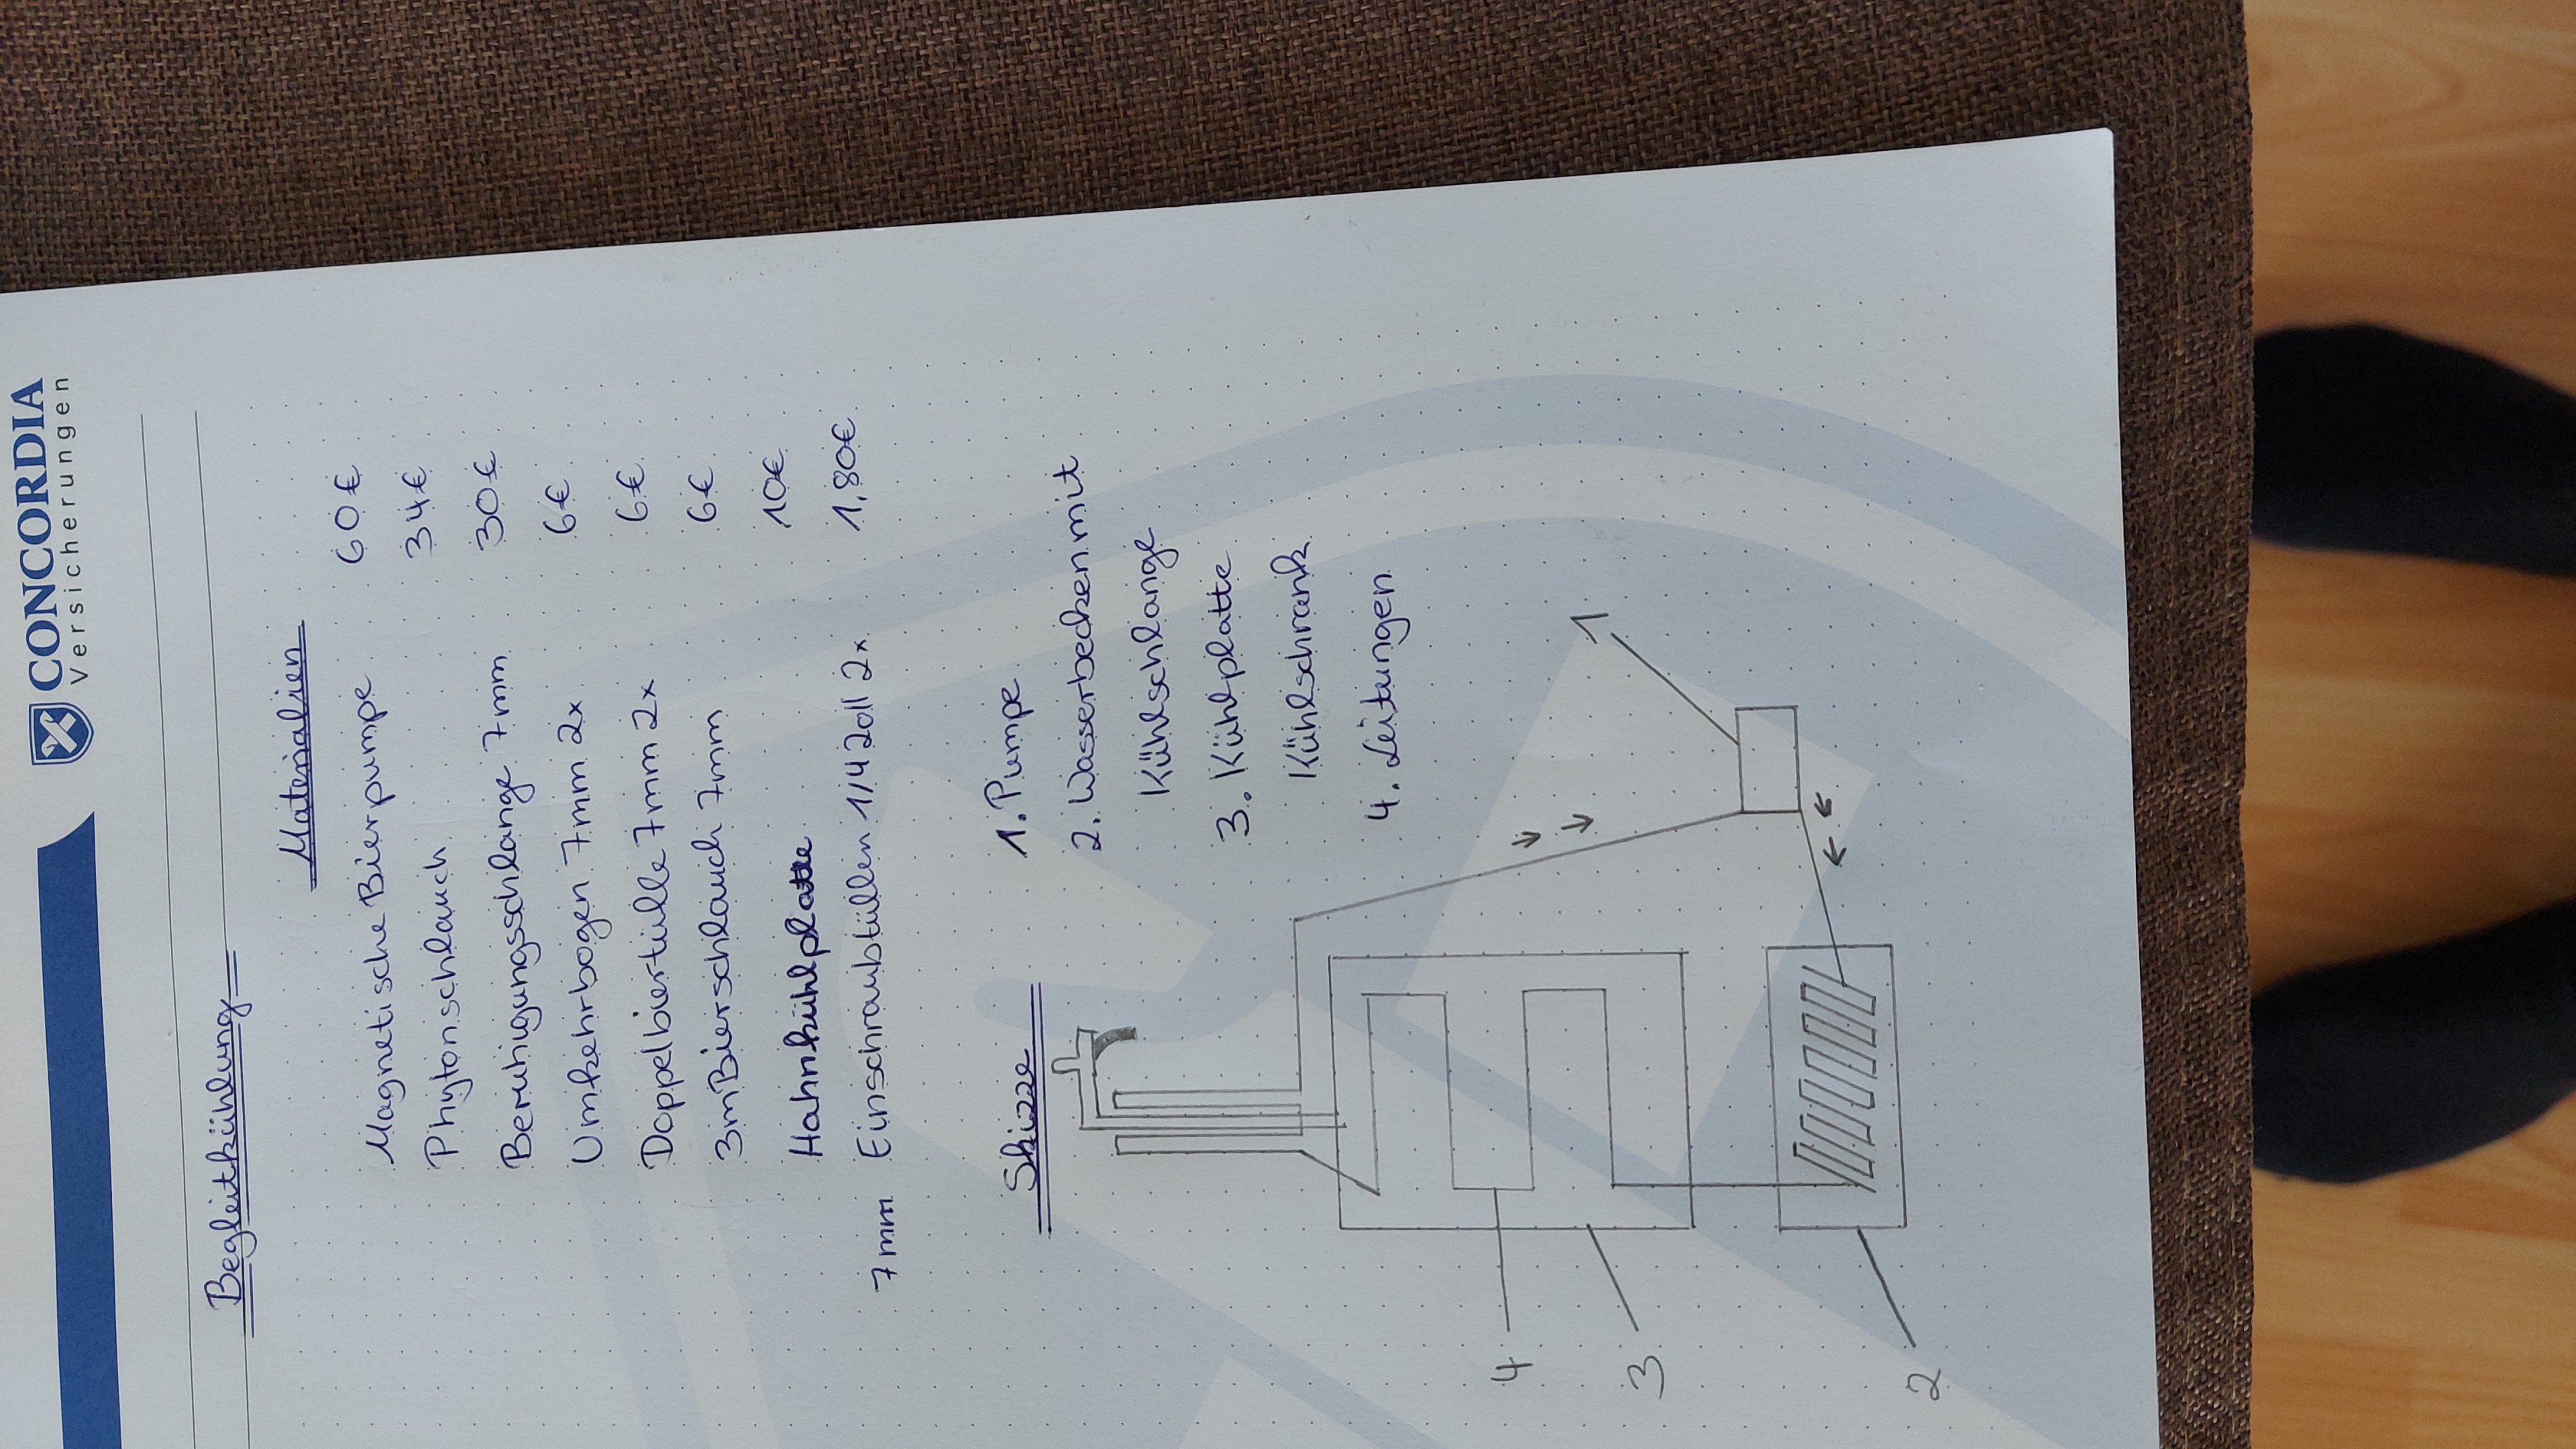 CONCORDIA
Versicherungen
Begleitkühlung
Materialien
Magnetische Bierpumpe 60€
Phytonschlauch 34€
Beruhigungsschlange 7mm 30€
Umkehrbogen 7mm 2x 6€
Doppelbiertülle 7mm 2x 6€
3m Bierschlauch 7mm 6€
Hahnkühlplatte 10€
7mm Einschraubtüllen 1/4 Zoll 2x 1,80€
Skizze
1. Pumpe
2. Wasserbecken mit
Kühlschlange
3. Kühlplatte
Kühlschrank
4. Leitungen
1
4
3
2